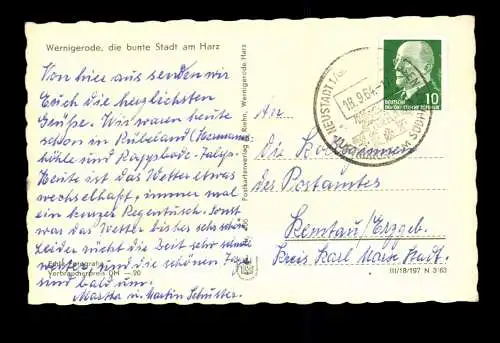 Wernigerode, die bunte Stadt am Harz
Von hier aus senden wir
Euch die herzlichsten
Grüße. Wir waren heute
schon in Rübeland (Hermanns-
höhle und Rappbode-Talsp.
Heute ist das Wetter etwas
wechselhaft, immer mal
ein kurzer Regentusch. Sonst
war das Wetter bisher sehr schön
Leider rückt die Zeit sehr schnell
weiter, und die schönen Tage
sind bald um.
Martha u. Martin Schütter.
Echte Fotografie
Verbraucherpreis DM -.20
Postkartenverlag R. Riehn, Wernigerode/Harz
NEUSTADT
18.9.64
DEUTSCHE
DEMOKRATISCHE REPUBLIK
10
An
die Kolleginnen
des Postamtes
Kreis Karl Marx Stadt.
III/18/197 N 3 63